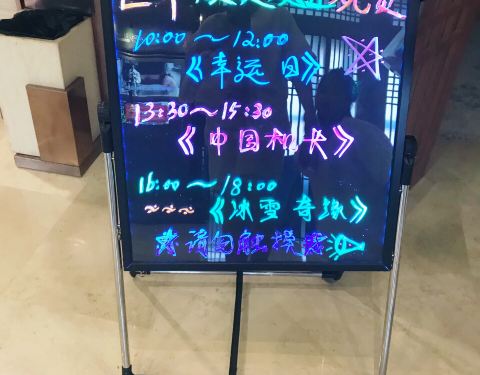 10:00～12:00
《幸运日》
13:30～15:30
《中国机卡》
16:00～18:00
～～～《冰雪奇缘》
请勿触摸